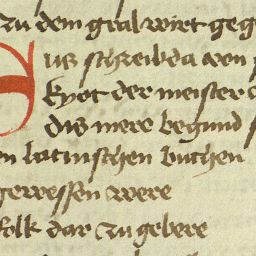 zu dem gral wirt geg
Sus schreibda von
kyot der meister
dis mere begund
en latinschen buchen
gewessen were
folk dar zu gebere